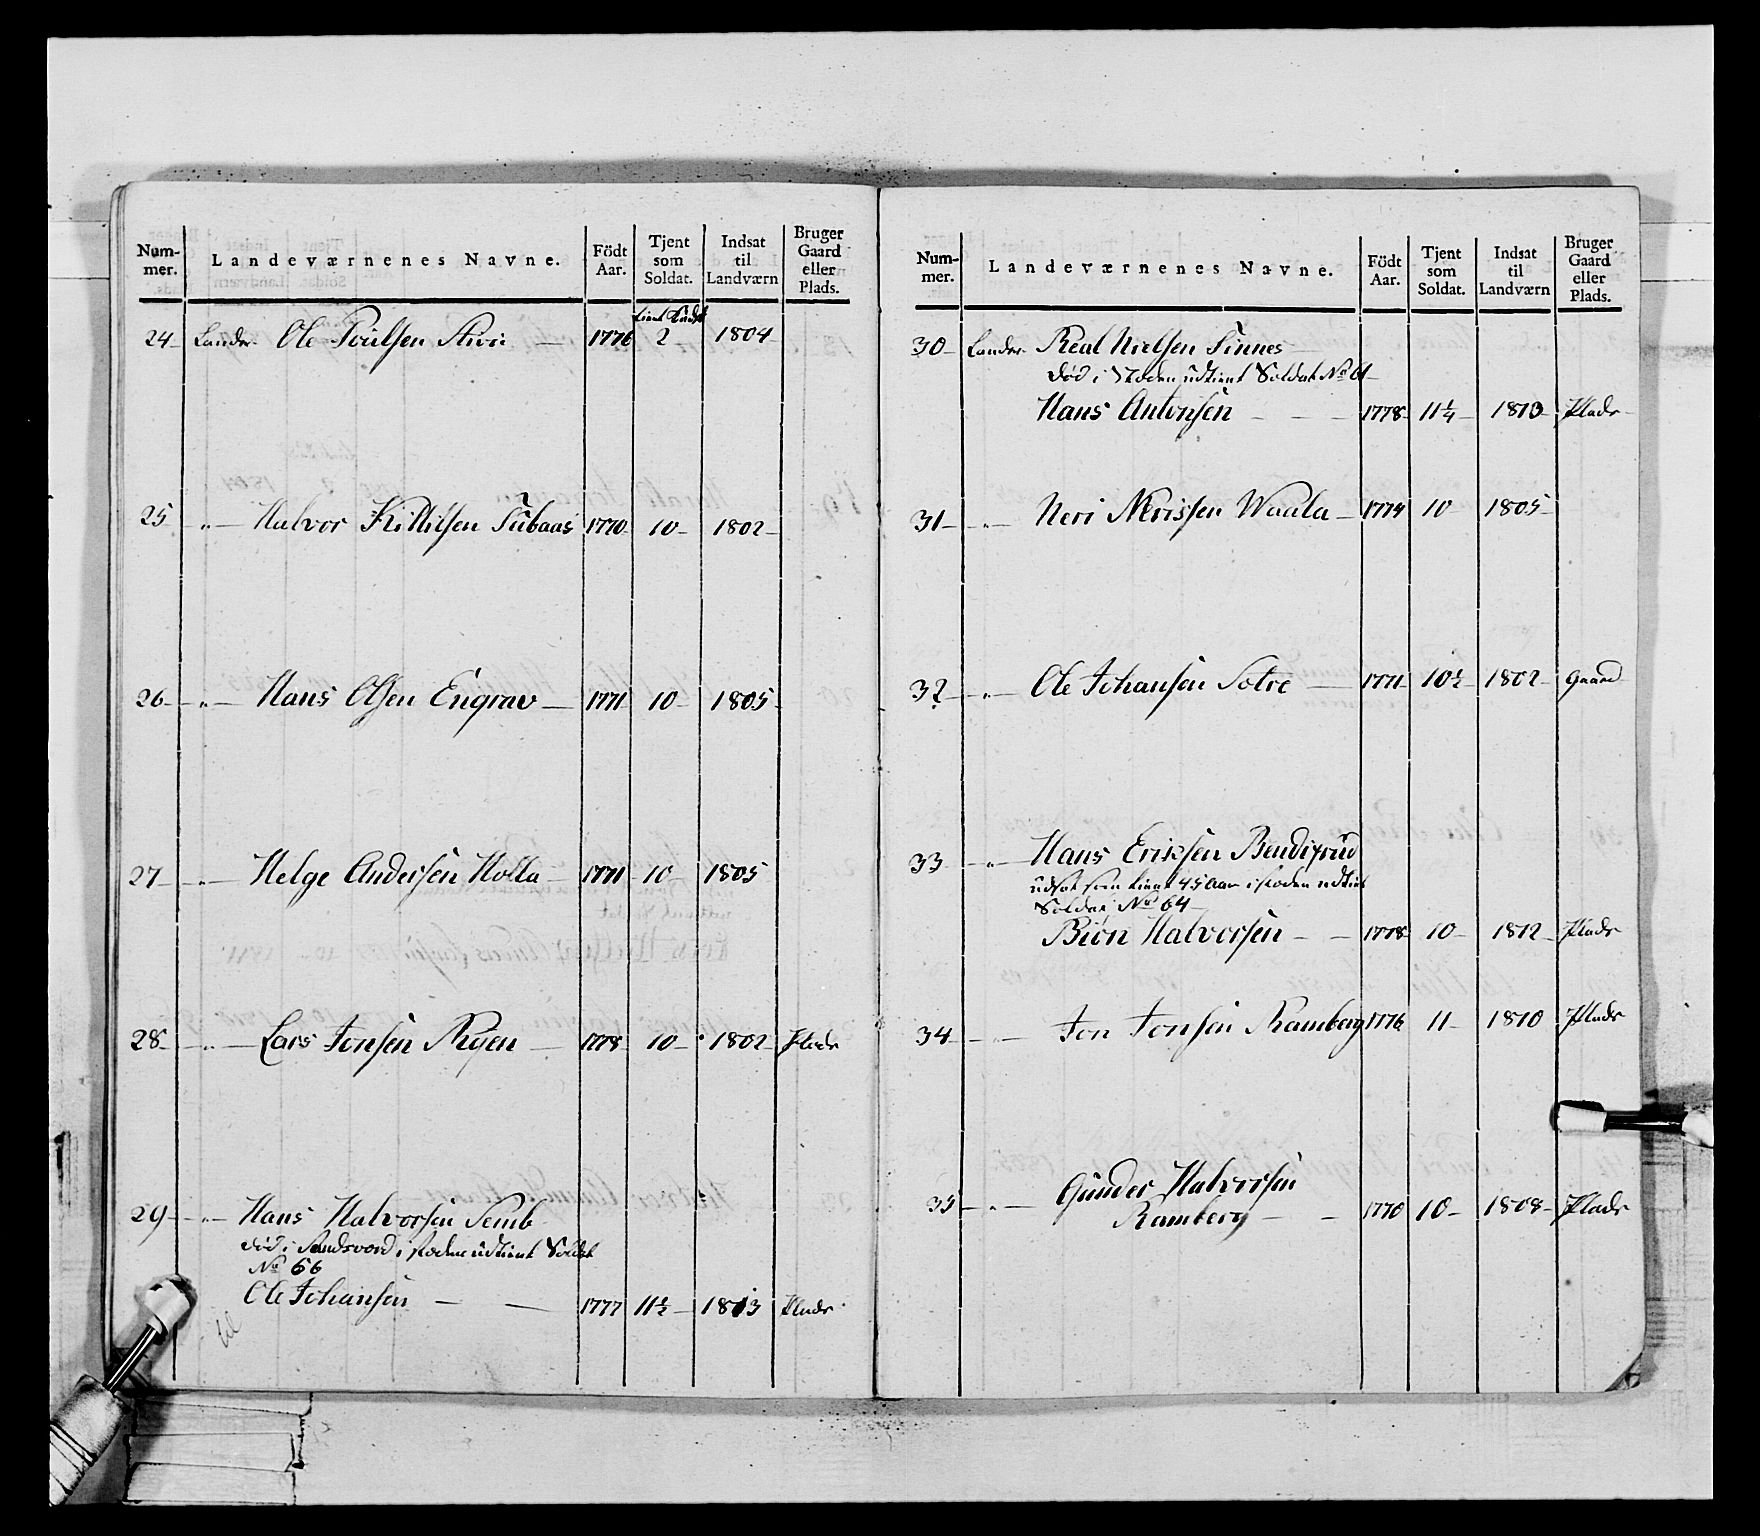 Num-
mer.
Landeværnenes Navne.
Födt
Aar.
Tjent
som
Soldat.
Indsat
til
Landværn
Bruger
Gaard
eller
Plads.
24 Landev. Ole Poulsen 1776 2 1804
25 " Halvor Kittilsen Tubaas 1770 10 1802
26 " Hans Olsen Engrav 1771 10 1805
27 " Helge Andersen Holla 1771 10 1805
28 " Lars Jonsen Ryen 1778 10 1802 Plads
29 " Hans Halvorsen Semb
død i Sandsværd i stæden udtient Soldat
No 66
Ole Johansen 1777 11½ 1813 Plads
Num-
mer.
Landeværnenes Navne.
Födt
Aar.
Tjent
som
Soldat.
Indsat
til
Landværn
Bruger
Gaard
eller
Plads.
30 Landev. Real Nielsen Finnes
død i Stæden udtient Soldat No 61
Hans Antonsen 1778 11¼ 1810 Plads
31 " Neri Nerissen Waala 1774 10 1805
32 " Ole Johansen Solve 1771 10½ 1802 Gaard
33 " Hans Eriksen Bendigrud
udsat som tient 45 Aar i stæden udtient
Soldat No 64
Biön Halvorsen 1778 10 1812 Plads
34 " Jon Jonsen Ramberg 1776 11 1810 Plads
35 " Gunder Halvorsen
Ramberg 1770 10 1808 Plads